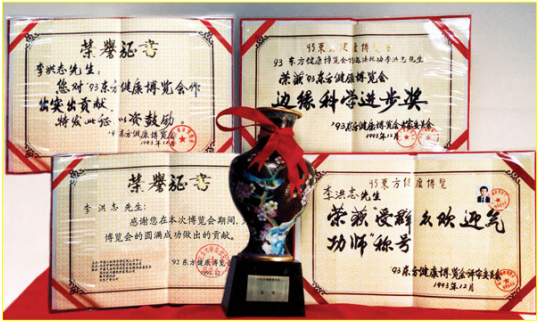 荣誉证书
李洪志先生:
您对'93东方健康博览会作
出突出贡献,
特发此证,以资鼓励。
'93东方健康博览会
1993年12月
93东方健康博览会
李洪志先生
荣获'93东方健康博览会
边缘科学进步奖
'93东方健康博览会
1993年12月
荣誉证书
李洪志 先生:
感谢您在本次博览会期间,
博览会的圆满成功做出的贡献。
'92东方健康博览会
1992.12
93东方健康博览
李洪志先生
荣获"受群众欢迎气
功师"称号
'93东方健康博览会评审委员会
1993年12月